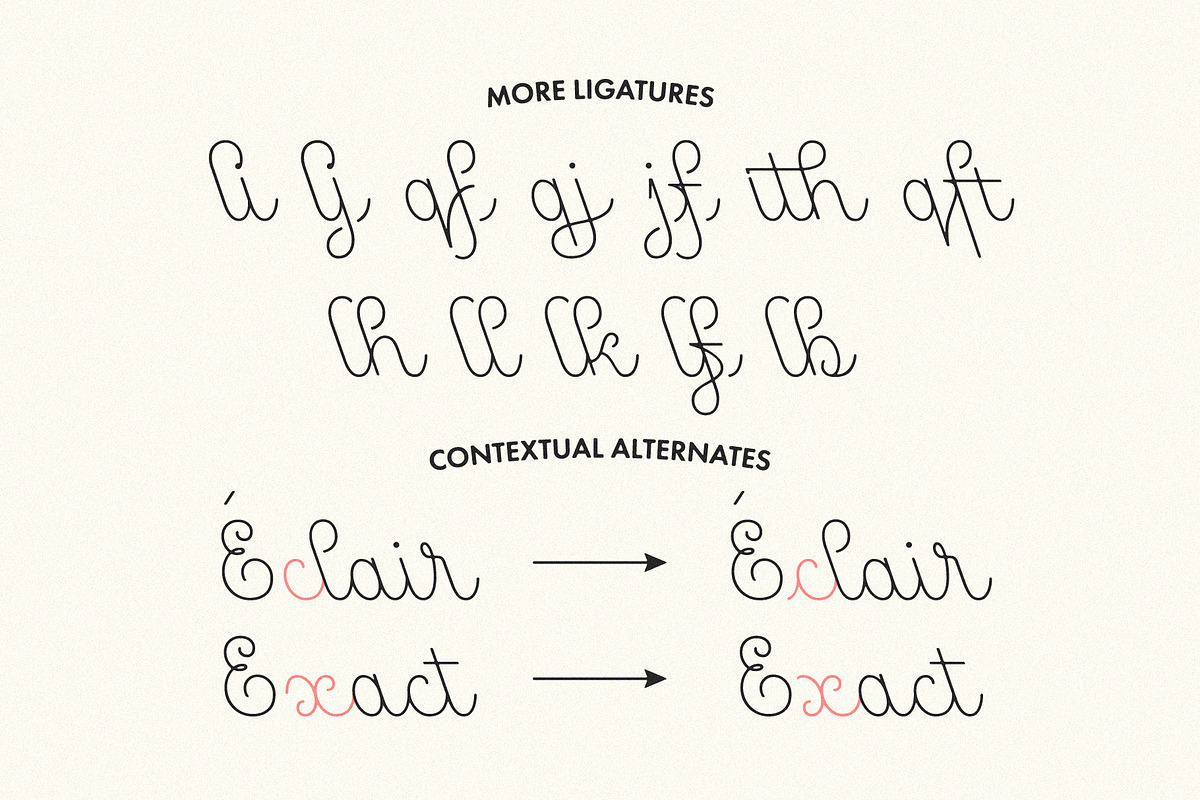 MORE LIGATURES
li lj qf gj jf ith qft
lh ll lk lf lb
CONTEXTUAL ALTERNATES
Éclair → Éclair
Exact → Exact